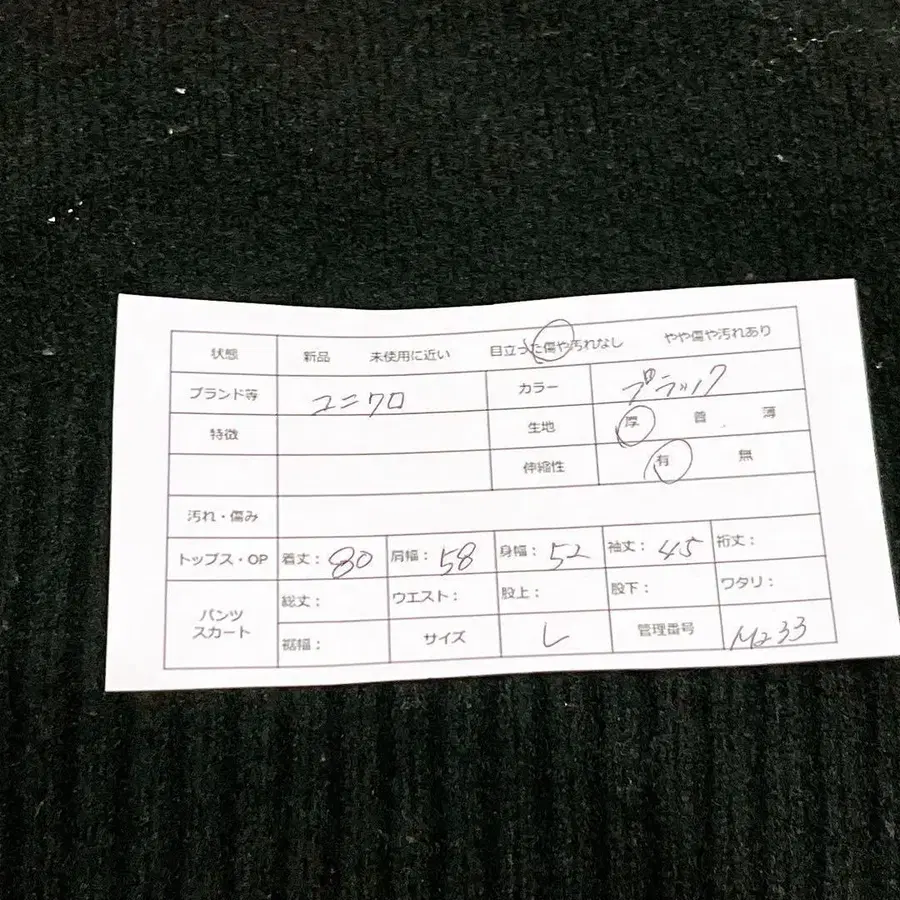 状態 新品 未使用に近い 目立った傷や汚れなし やや傷や汚れあり
ブランド等 ユニクロ カラー ブラック
特徴 生地 厚 普 薄
伸縮性 有 無
汚れ・傷み
トップス・OP 着丈：80 肩幅：58 身幅：52 袖丈：45 裄丈：
パンツ スカート 総丈： ウエスト： 股上： 股下： ワタリ：
裾幅： サイズ L 管理番号 M233